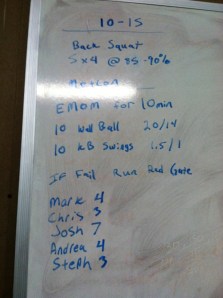 10-15
Back Squat
5x4 @ 85-90%
Metcon
EMOM for 10min
10 Wall Ball 20/14
10 KB Swings 1.5/1
If Fail Run Red Gate
Mark 4
Chris 3
Josh 7
Andrea 4
Steph 3